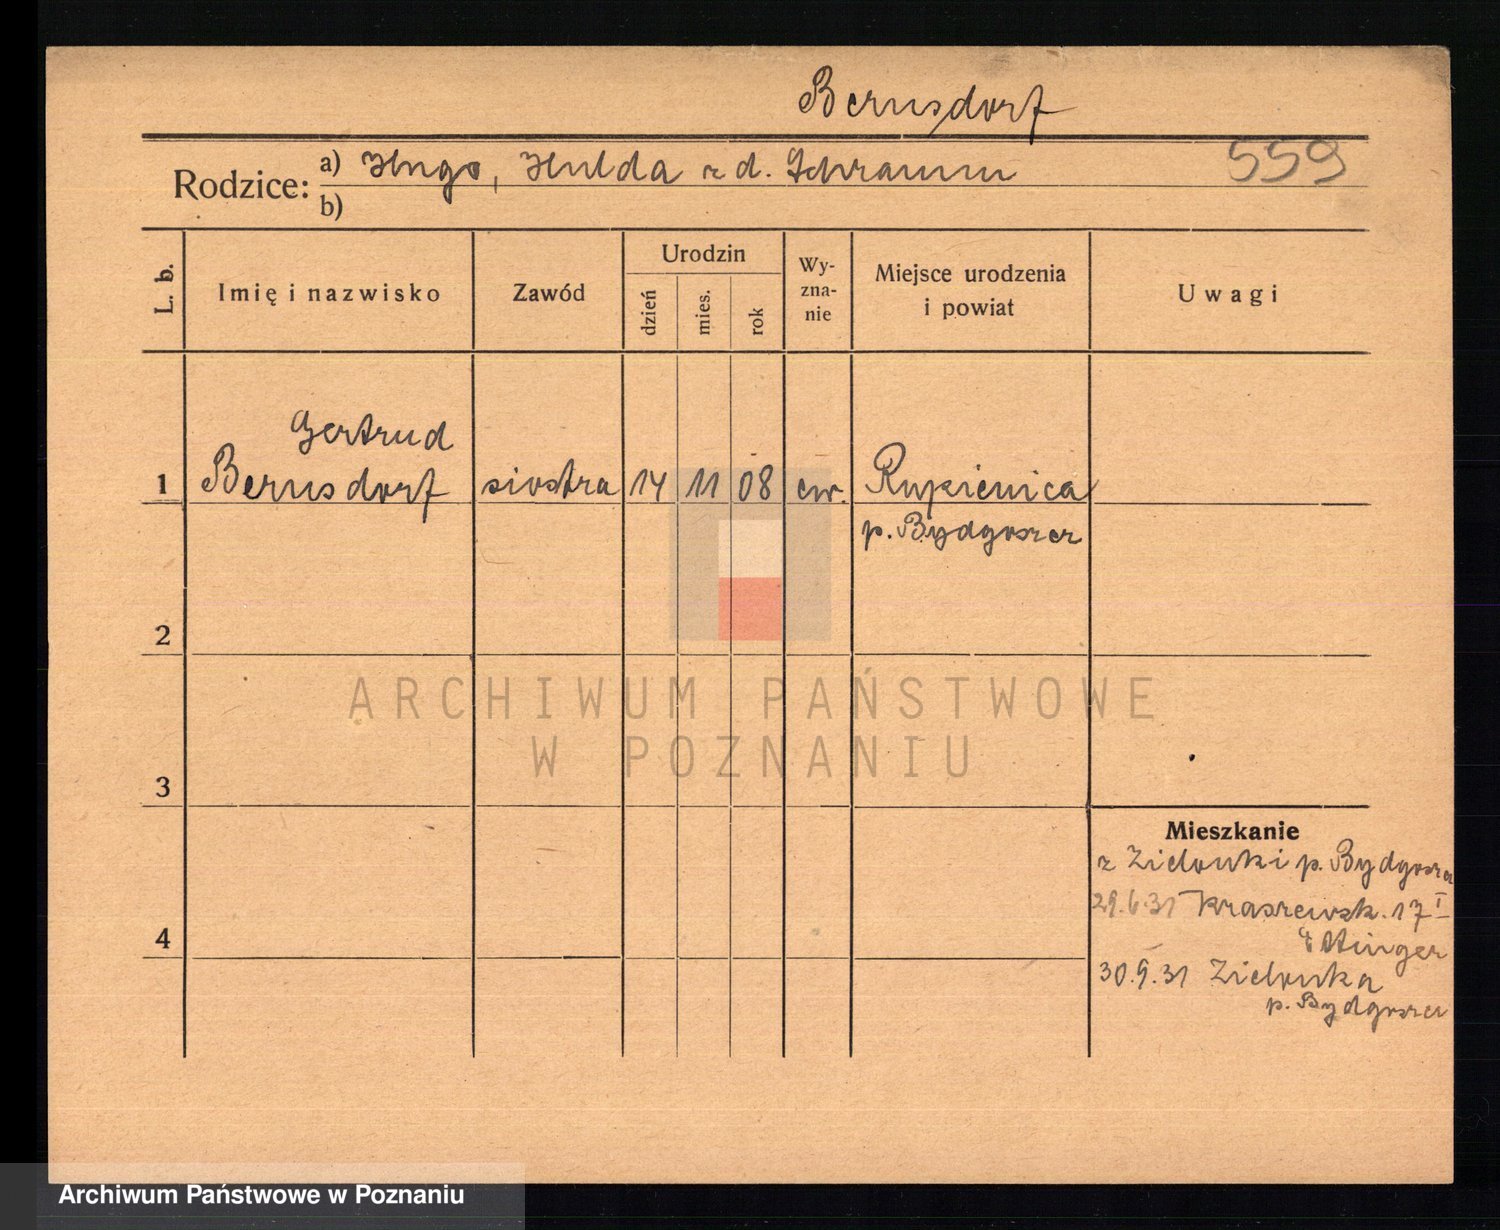 Bernsdorf
Rodzice: a) Hugo, Hulda z d. Schramm 559
b)
L. b. Imię i nazwisko Zawód Urodzin dzień mies. rok Wy-zna-nie Miejsce urodzenia i powiat Uwagi
Gertrud
1 Bernsdorf siostra 14 11 08 ew. Rupienica
p. Bydgoszcz
2
ARCHIWUM PAŃSTWOWE
W POZNANIU
3
Mieszkanie
z Zielonki p. Bydgoszcz
29.6.31 Kraszewsk. 17 I
4
30.9.31 Zielonka
p. Bydgoszcz
Archiwum Państwowe w Poznaniu